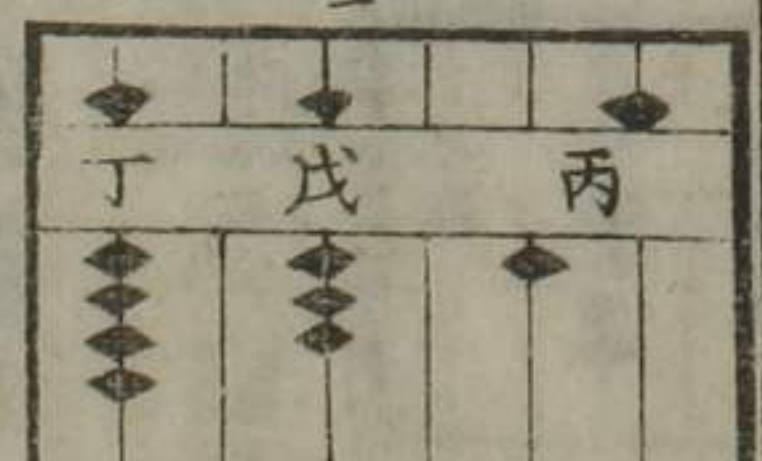 丁 戊 丙